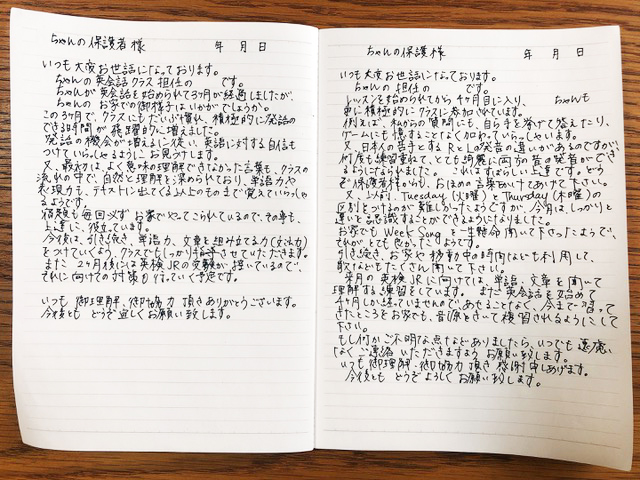 ちゃんの保護者様　年　月　日
いつも大変お世話になっております。
ちゃんの英会話クラス担任の　です。
ちゃんが英会話を始められて3ヶ月が経過しましたが、
ちゃんのお家での御様子はいかがでしょうか。
この3ヶ月で、クラスにもだいぶ慣れ、積極的に発話の
できる時間が飛躍的に増えました。
発話の機会が増えるに従い、英語に対する自信も
つけていらっしゃるようにお見うけします。
又、最初はよく意味の理解できなかった言葉も、クラスの
流れの中で、自然と理解を深められており、単語力や
表現力も、テキストに出てくる以上のものまで覚えていらっしゃ
るようです。
宿題も毎回必ずお家でやってこられているので、その事も、
上達に、役立っています。
今後は、引き続き、単語力、文章を組み立てる力(文法力)
をつけていくよう、クラスでもしっかり指導させていただきます。
また2ヶ月後には英検JRの受験が控えているので、
それに向けての対策も行っていく予定です。
いつも御理解、御協力頂きありがとうございます。
今後もどうぞ宜しくお願い致します。
ちゃんの保護様　年　月　日
いつも大変お世話になっております。
ちゃんの担任の　です。
レッスンを始められてから4ヶ月目に入り、　ちゃんも
更に積極的にクラスに参加されています。
例えば、私からの質問にも自ら手を挙げて答えたり、
ゲームにも臆することなく加わっていらっしゃいます。
又、日本人の苦手とするRとLの発音の違いがあるのですが、
何度も練習を重ねて、とても綺麗に両方の音の発音ができ
るようになられました。これはすばらしい上達です。どう
ぞ保護者様からも、おほめの言葉をかけてあげて下さい。
以前、Tuesday(火曜)とThursday(木曜)の
区別をつけるのが難しかったようですが、今月はしっかりと
違いを認識することができるようになりました。
お家でもWeek Songを一生懸命聞いて下さったようで、
それがとても良かったようです。
引き続き、お家や移動中の時間なども利用して、
歌などもたくさん聞いて下さい。
来月の英検JRに向けては、単語・文章を聞いて
理解する練習をしています。まだ英会話を始めて
4ヶ月しか経っていませんので、あせることなく、今まで習って
きたところをお家でも、音源をきいて復習されるようにして
下さい。
もし何かご不明な点などありましたら、いつでも遠慮
なくご連絡いただきますようお願い致します。
いつも御理解・御協力頂き感謝申しあげます。
今後ともどうぞよろしくお願い致します。